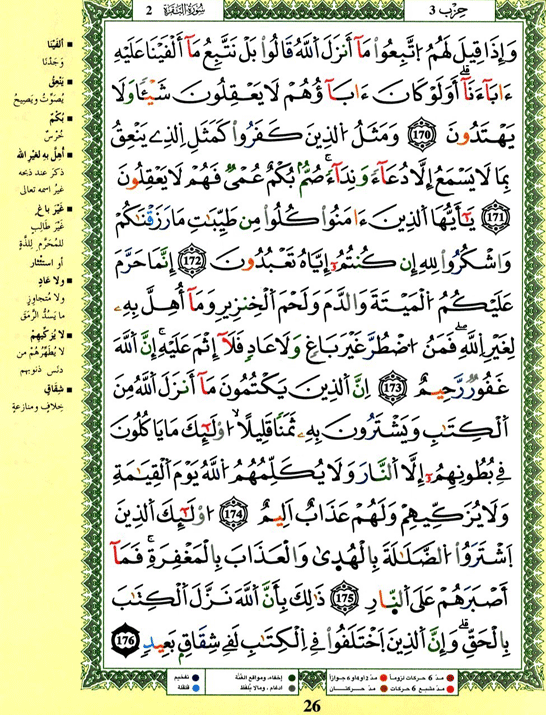 حِزْب 3
سُورَةُ البَقَرَة 2
وَإِذَا قِيلَ لَهُمُ اتَّبِعُوا مَآ أَنزَلَ اللَّهُ قَالُوا بَلْ نَتَّبِعُ مَآ أَلْفَيْنَا عَلَيْهِ
ءَابَآءَنَآۖ أَوَلَوْ كَانَ ءَابَآؤُهُمْ لَا يَعْقِلُونَ شَيْـًٔا وَلَا
يَهْتَدُونَ 170 وَمَثَلُ الذِينَ كَفَرُوا كَمَثَلِ الذِے يَنْعِقُ
بِمَا لَا يَسْمَعُ إِلَّا دُعَآءً وَنِدَآءًۚ صُمُّۢ بُكْمٌ عُمْيٌ فَهُمْ لَا يَعْقِلُونَ
171 يَـٰٓأَيُّهَا الذِينَ ءَامَنُوا كُلُوا مِن طَيِّبَـٰتِ مَا رَزَقْنَـٰكُمْ
وَاشْكُرُوا لِلهِ إِن كُنتُمُۥٓ إِيَّاهُ تَعْبُدُونَ 172 إِنَّمَا حَرَّمَ
عَلَيْكُمُ الْمَيْتَةَ وَالدَّمَ وَلَحْمَ الْخِنزِيرِ وَمَآ أُهِلَّ بِهِۦ
لِغَيْرِ اللَّهِۖ فَمَنُ اضْطُرَّ غَيْرَ بَاغٍ وَلَا عَادٍ فَلَآ إِثْمَ عَلَيْهِۚ إِنَّ اللَّهَ
غَفُورٌ رَّحِيمٌ 173 اِنَّ الذِينَ يَكْتُمُونَ مَآ أَنزَلَ اللَّهُ مِنَ
الْكِتَـٰبِ وَيَشْتَرُونَ بِهِۦ ثَمَنًا قَلِيلًا اُوْلَـٰٓئِكَ مَا يَاكُلُونَ
فِے بُطُونِهِمُۥٓ إِلَّا النَّارَ وَلَا يُكَلِّمُهُمُ اللَّهُ يَوْمَ الْقِيَـٰمَةِ
وَلَا يُزَكِّيهِمْ وَلَهُمْ عَذَابٌ اَلِيمٌ 174 اُوْلَـٰٓئِكَ الذِينَ
اَشْتَرَوُا الضَّلَـٰلَةَ بِالْهُدٜىٰ وَالْعَذَابَ بِالْمَغْفِرَةِۚ فَمَآ
أَصْبَرَهُمْ عَلَى النّ۪ارِ 175 ذَٰلِكَ بِأَنَّ اللَّهَ نَزَّلَ الْكِتَـٰبَ
بِالْحَقِّۖ وَإِنَّ الذِينَ اَخْتَلَفُوا فِے الْكِتَـٰبِ لَفِے شِقَاقٍ بَعِيدٍ 176
■ أَلْفَيْنَا
وَجَدْنَا
■ يَنْعِقُ
يُصَوِّتُ ويَصِيحُ
■ بُكْمٌ
خُرْسٌ
■ أُهِلَّ بِهِ لِغَيْرِ اللهِ
ذكر عند ذبحه
غيرُ اسمه تعالى
■ غَيْرَ بَاغٍ
غَيْرَ طَالِبٍ
للمُحَرَّمِ لِلَذَّةٍ
أو استئثار
■ ولا عَادٍ
ولا مُتجاوِزٍ
ما يَسُدُّ الرَّمَقَ
■ لا يُزَكِّيهِمْ
لا يُطَهِّرُهُمْ من
دنَس ذنوبهم
■ شِقَاقٍ
خلاف ومنازعة
● مدّ 6 حركات لزوماً ● مدّ 2 أو 4 أو 6 جوازاً
● إخفاء، ومواقع الغُنَّة
● تفخيم
● مدّ مشبع 6 حركات ● مدّ حركتان
● ادغام، ومالا يُلفظ
● قلقلة
26